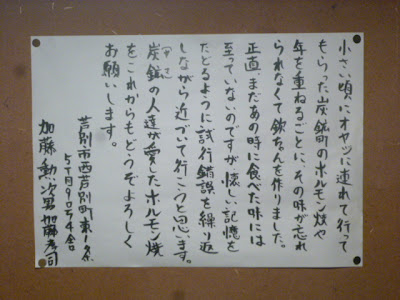 小さい頃にオヤジに連れて行って
もらった炭鉱町のホルモン焼や
年を重ねるごとに、その味が忘れ
られなくて欽ちゃんを作りました。
正直、まだあの時に食べた味には
至っていないのですが、懐しい記憶を
たどるように試行錯誤を繰り返
しながら近づいて行こうと思います。
炭鉱(やま)の人達が愛したホルモン焼
をこれからもどうぞよろしく
お願いします。
芦別市西芦別町東1条
5丁目
加藤勲、次男 加藤孝司